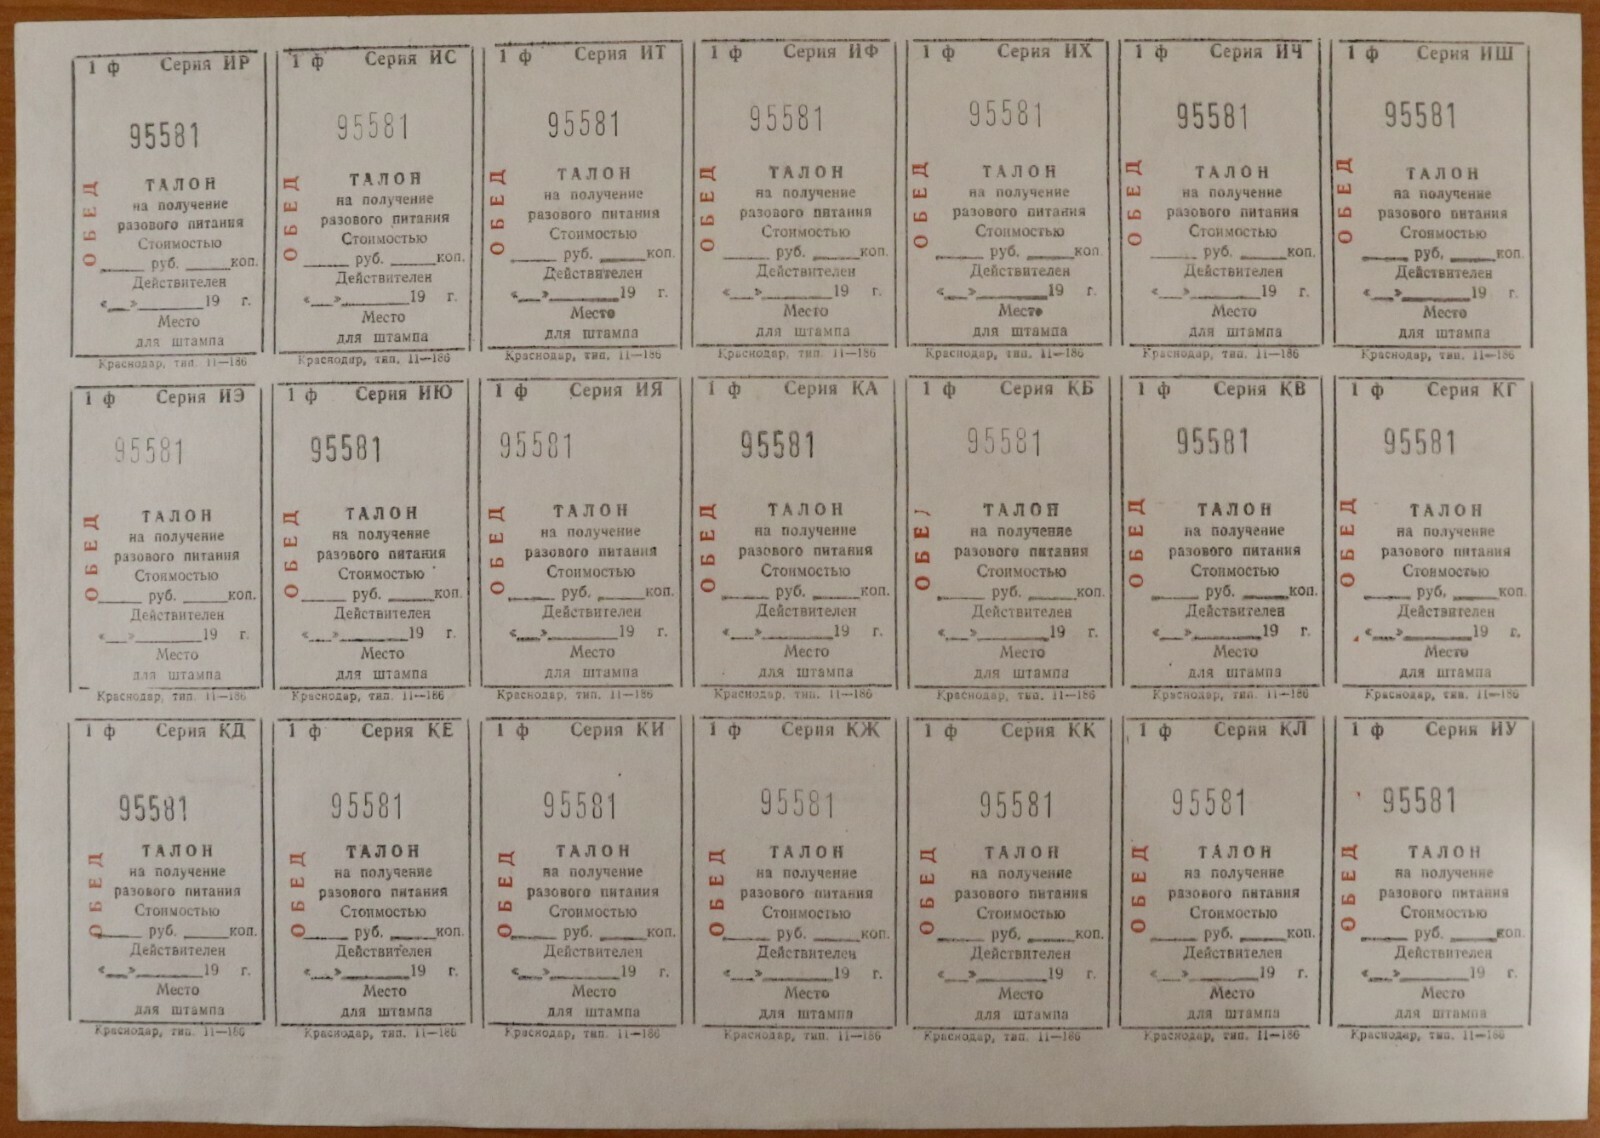 1 ф Серия ИР
95581
ОБЕД
ТАЛОН
на получение
разового питания
Стоимостью
_____ руб. _____коп.
Действителен
«__»_______19 г.
Место
для штампа
Краснодар, тип. 11—186
1 ф Серия ИС
95581
ОБЕД
ТАЛОН
на получение
разового питания
Стоимостью
_____ руб. _____коп.
Действителен
«__»_______19 г.
Место
для штампа
Краснодар, тип. 11—186
1 ф Серия ИТ
95581
ОБЕД
ТАЛОН
на получение
разового питания
Стоимостью
_____ руб. _____коп.
Действителен
«__»_______19 г.
Место
для штампа
Краснодар, тип. 11—186
1 ф Серия ИФ
95581
ОБЕД
ТАЛОН
на получение
разового питания
Стоимостью
_____ руб. _____коп.
Действителен
«__»_______19 г.
Место
для штампа
Краснодар, тип. 11—186
1 ф Серия ИХ
95581
ОБЕД
ТАЛОН
на получение
разового питания
Стоимостью
_____ руб. _____коп.
Действителен
«__»_______19 г.
Место
для штампа
Краснодар, тип. 11—186
1 ф Серия ИЧ
95581
ОБЕД
ТАЛОН
на получение
разового питания
Стоимостью
_____ руб. _____коп.
Действителен
«__»_______19 г.
Место
для штампа
Краснодар, тип. 11—186
1 ф Серия ИШ
95581
ОБЕД
ТАЛОН
на получение
разового питания
Стоимостью
_____ руб, _____коп.
Действителен
«__»_______19 г.
Место
для штампа
Краснодар, тип. 11—186
1 ф Серия ИЭ
95581
ОБЕД
ТАЛОН
на получение
разового питания
Стоимостью
_____ руб. _____коп.
Действителен
«__»_______19 г.
Место
для штампа
Краснодар, тип. 11—186
1 ф Серия ИЮ
95581
ОБЕД
ТАЛОН
на получение
разового питания
Стоимостью
_____ руб. _____коп.
Действителен
«__»_______19 г.
Место
для штампа
Краснодар, тип. 11—186
1 ф Серия ИЯ
95581
ОБЕД
ТАЛОН
на получение
разового питания
Стоимостью
_____ руб. _____коп.
Действителен
«__»_______19 г.
Место
для штампа
Краснодар, тип. 11—186
1 ф Серия КА
95581
ОБЕД
ТАЛОН
на получение
разового питания
Стоимостью
_____ руб. _____коп.
Действителен
«__»_______19 г.
Место
для штампа
Краснодар, тип. 11—186
1 ф Серия КБ
95581
ОБЕД
ТАЛОН
на получение
разового питания
Стоимостью
_____ руб. _____коп.
Действителен
«__»_______19 г.
Место
для штампа
Краснодар, тип. 11—186
1 ф Серия КВ
95581
ОБЕД
ТАЛОН
на получение
разового питания
Стоимостью
_____ руб. _____коп.
Действителен
«__»_______19 г.
Место
для штампа
Краснодар, тип. 11—186
1 ф Серия КГ
95581
ОБЕД
ТАЛОН
на получение
разового питания
Стоимостью
_____ руб, _____коп.
Действителен
«__»_______19 г.
Место
для штампа
Краснодар, тип. 11—186
1 ф Серия КД
95581
ОБЕД
ТАЛОН
на получение
разового питания
Стоимостью
_____ руб. _____коп.
Действителен
«__»_______19 г.
Место
для штампа
Краснодар, тип. 11—186
1 ф Серия КЕ
95581
ОБЕД
ТАЛОН
на получение
разового питания
Стоимостью
_____ руб. _____коп.
Действителен
«__»_______19 г.
Место
для штампа
Краснодар, тип. 11—186
1 ф Серия КИ
95581
ОБЕД
ТАЛОН
на получение
разового питания
Стоимостью
_____ руб. _____коп.
Действителен
«__»_______19 г.
Место
для штампа
Краснодар, тип. 11—186
1 ф Серия КЖ
95581
ОБЕД
ТАЛОН
на получение
разового питания
Стоимостью
_____ руб. _____коп.
Действителен
«__»_______19 г.
Место
для штампа
Краснодар, тип. 11—186
1 ф Серия КК
95581
ОБЕД
ТАЛОН
на получение
разового питания
Стоимостью
_____ руб, _____коп.
Действителен
«__»_______19 г.
Место
для штампа
Краснодар, тип. 11—186
1 ф Серия КЛ
95581
ОБЕД
ТАЛОН
на получение
разового питания
Стоимостью
_____ руб. _____коп.
Действителен
«__»_______19 г.
Место
для штампа
Краснодар, тип. 11—186
1 ф Серия ИУ
95581
ОБЕД
ТАЛОН
на получение
разового питания
Стоимостью
_____ руб. _____коп.
Действителен
«__»_______19 г.
Место
для штампа
Краснодар, тип. 11—186